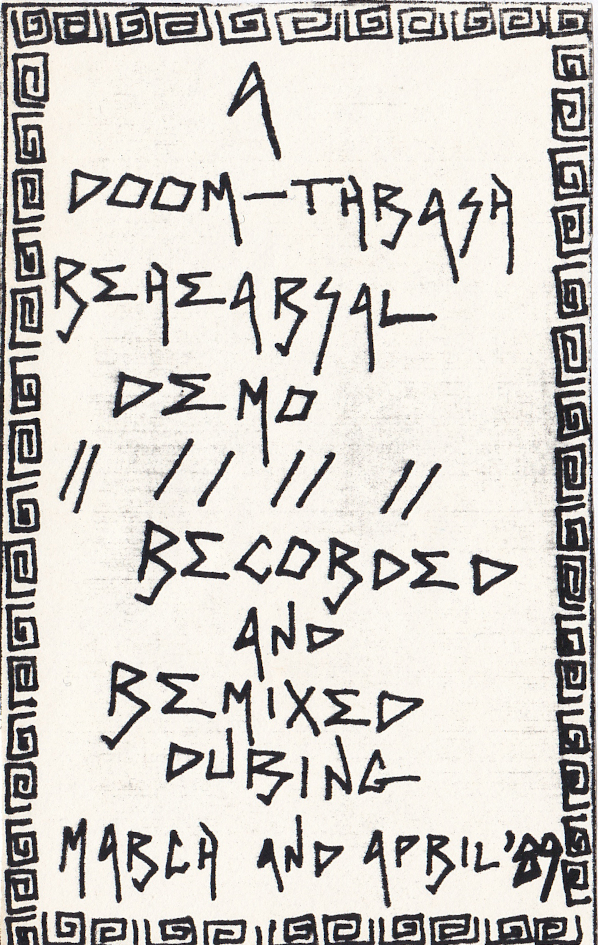 A
DOOM-THRASH
REHEARSAL
DEMO
// // // //
RECORDED
AND
REMIXED
DURING
MARCH AND APRIL '89